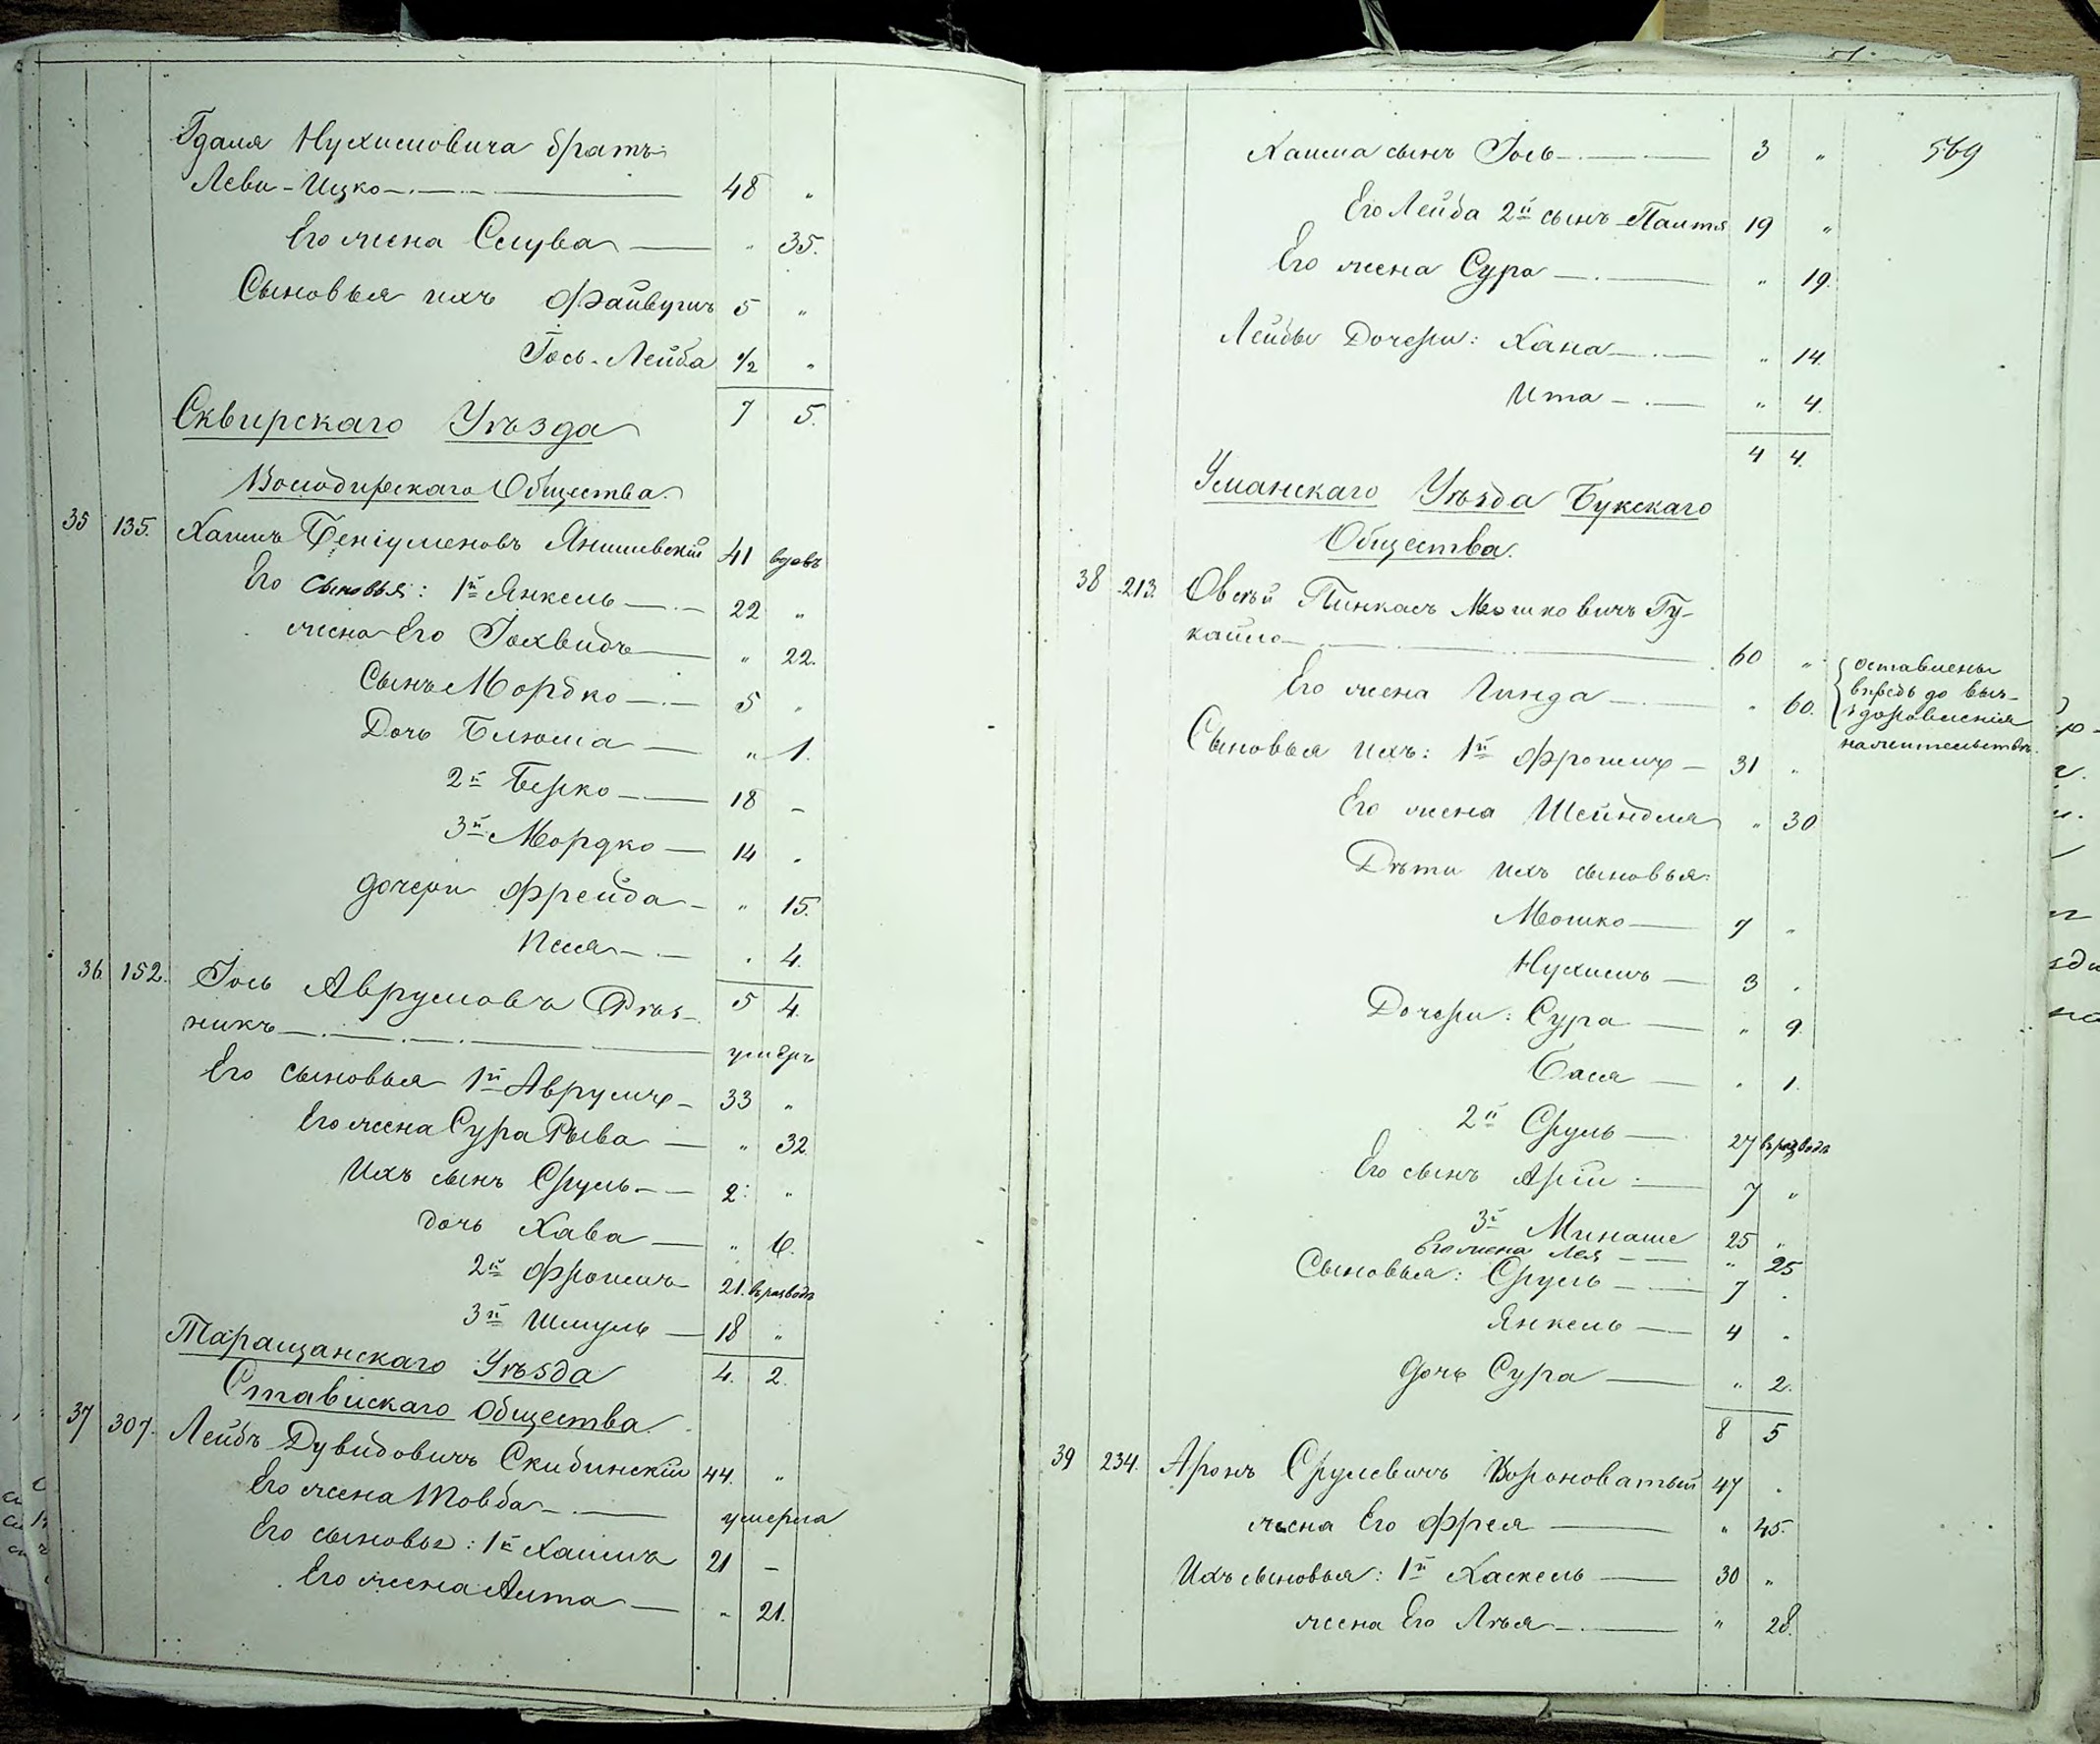 Гдаля Нухимовича братъ
Леви-Ицко 48 "
Его жена Слува " 35.
Сыновья ихъ Файвушъ 5 "
Іось-Лейба 1/2 "
7 5.
Сквирскаго Уѣзда
Володирскаго Общества.
35 135. Хаимъ Беніуменовъ Янишевскій 41 вдовъ
Его сыновья: 1й Янкель 22 "
жена Его Іохвидъ " 22.
Сынъ Мордко 5 "
Дочь Блюма " 1.
2й Берко 18 -
3й Мордко 14 "
дочери Фрейда " 15.
Песя " 4.
5 4.
36 152. Іось Аврумовъ Рѣз-
никъ умеръ
Его сыновья 1й Аврумъ 33 "
Его жена Сура Рыва " 32.
Ихъ сынъ Сруль 2 "
дочь Хава " 6.
2й Фроимъ 21. въ разводѣ
3й Шмуль 18 "
4. 2.
Таращанскаго Уѣзда
Ставискаго Общества.
37 307. Лейбъ Дувидовичъ Скибинскій 44. "
Его жена Товба умерла
Его сыновья: 1й Хаимъ 21 -
Его жена Алта " 21.
569
Хаима сынъ Іось 3 "
Его Лейба 2й сынъ Палтя 19 "
Его жена Сура " 19.
Лейбы Дочери: Хана " 14.
Ита " 4.
4 4.
Уманскаго Уѣзда Букскаго
Общества.
38 213. Овсѣй Пинкасъ Мошковичъ Гу-
кайло 60 "
Его жена Гинда " 60.
оставлены
впредь до выз-
здоровленія
на жительствѣ.
Сыновья ихъ: 1й Фроимъ 31 "
Его жена Шейндля " 30
Дѣти ихъ сыновья:
Мошко 7 "
Нухимъ 3 "
Дочери: Сура " 9.
Бася " 1.
2й Сруль 27 въ разводѣ
Его сынъ Арій 7 "
3й Минаше 25 "
Его жена Лея " 25
Сыновья: Сруль 7 "
Янкель 4 "
дочь Сура " 2.
8 5
39 234. Аронъ Срулевичъ Вороноватый 47 "
жена Его Фрея " 45.
Ихъ сыновья: 1й Хаскель 30 "
жена Его Лѣя " 28.